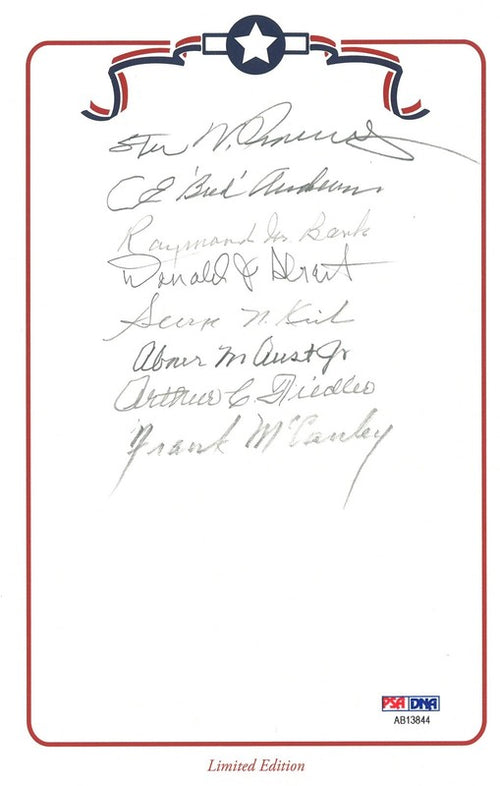 Stan W.
C E 'Bud' Anderson
Raymond M. Bank
Donald J Strait
George N. Kirk
Abner M Aust Jr
Arthur C Fiedler
Frank McCauley
PSA DNA
AB13844
Limited Edition